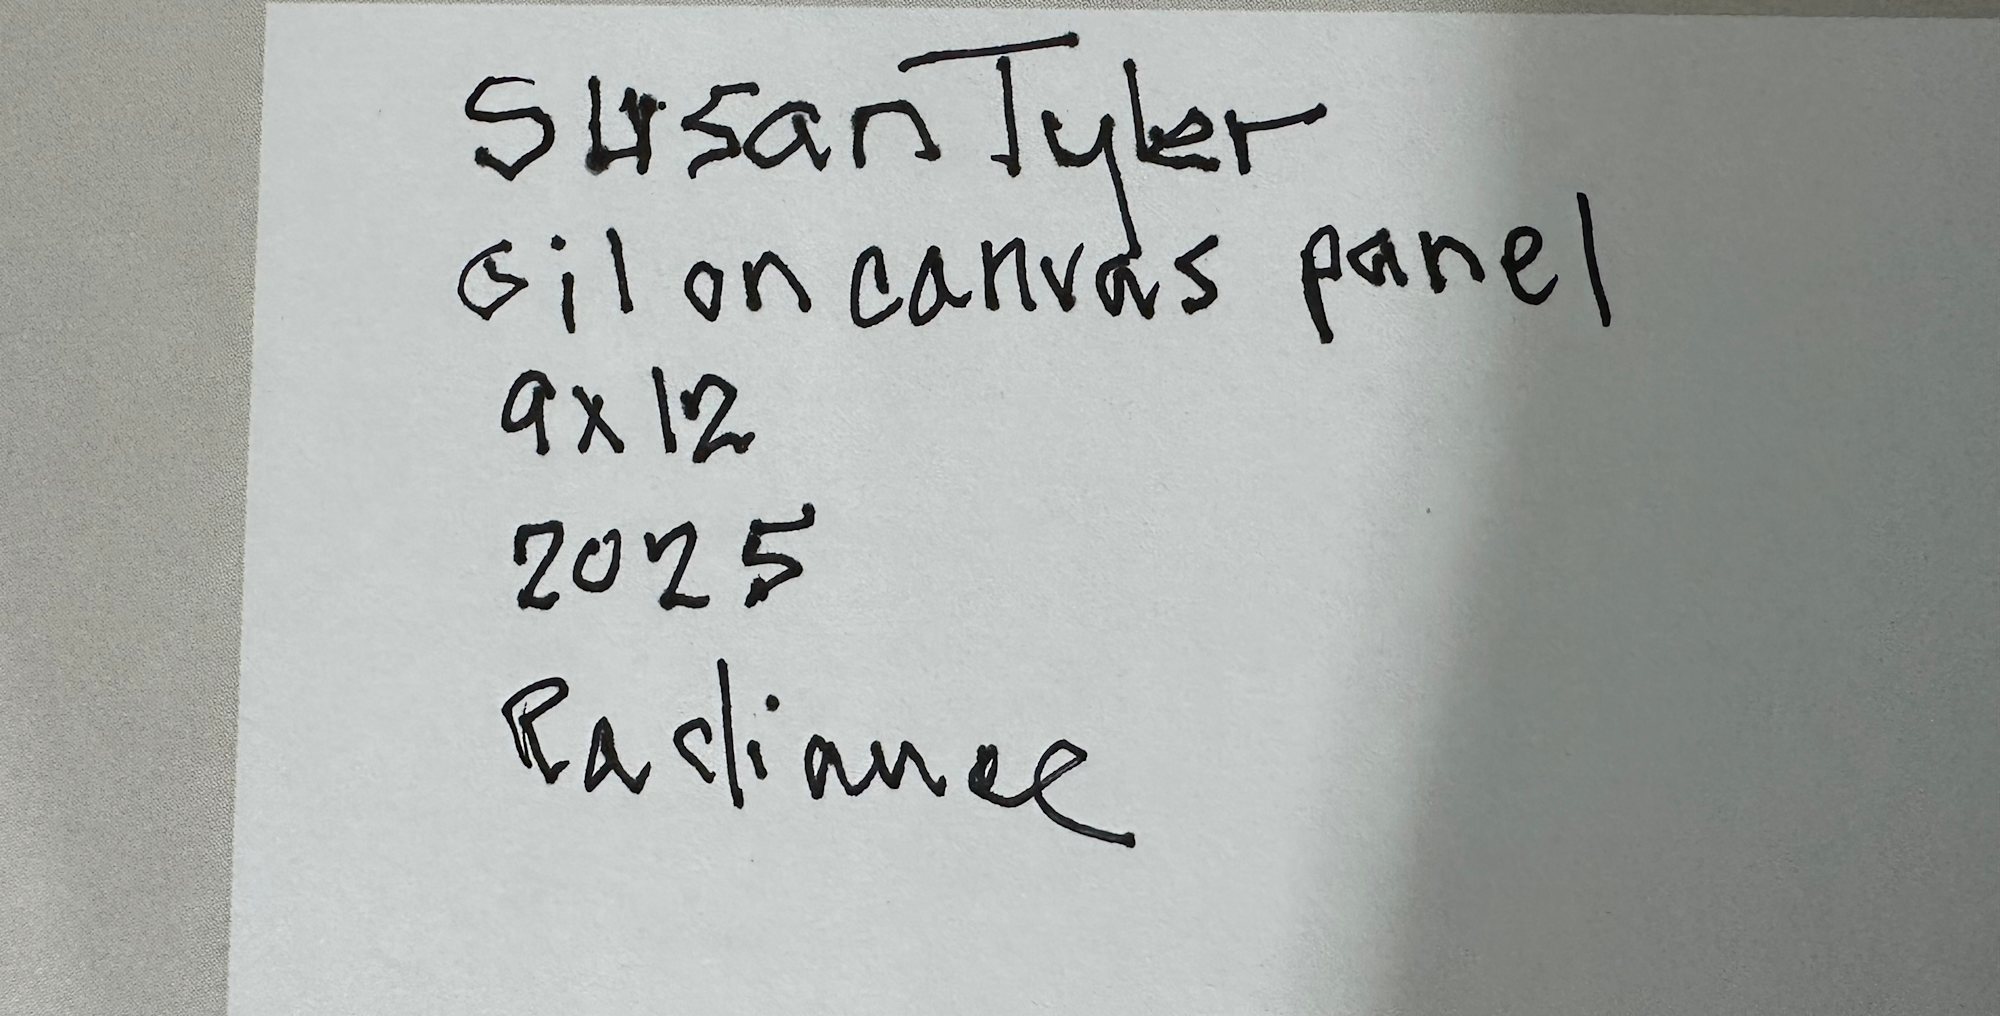 Susan Tyler
oil on canvas panel
9x12
2025
Radiance